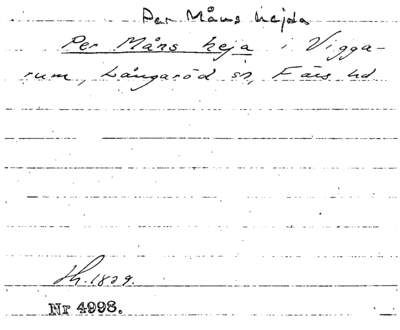 Per Måns hejda
Per Måns heja i Vigga-
rum, Långaröd sn, Färs hd
Sk. 1829.
Nr 4998.